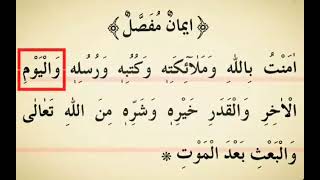 ﴿ اِيمَانٌ مُفَصَّلٌ ﴾
اٰمَنْتُ بِاللهِ وَمَلَآئِكَتِهٖ وَكُتُبِهٖ وَرُسُلِهٖ وَالْيَوْمِ
الْاٰخِرِ وَالْقَدَرِ خَيْرِهٖ وَشَرِّهٖ مِنَ اللهِ تَعَالٰى
وَالْبَعْثِ بَعْدَ الْمَوْتِ